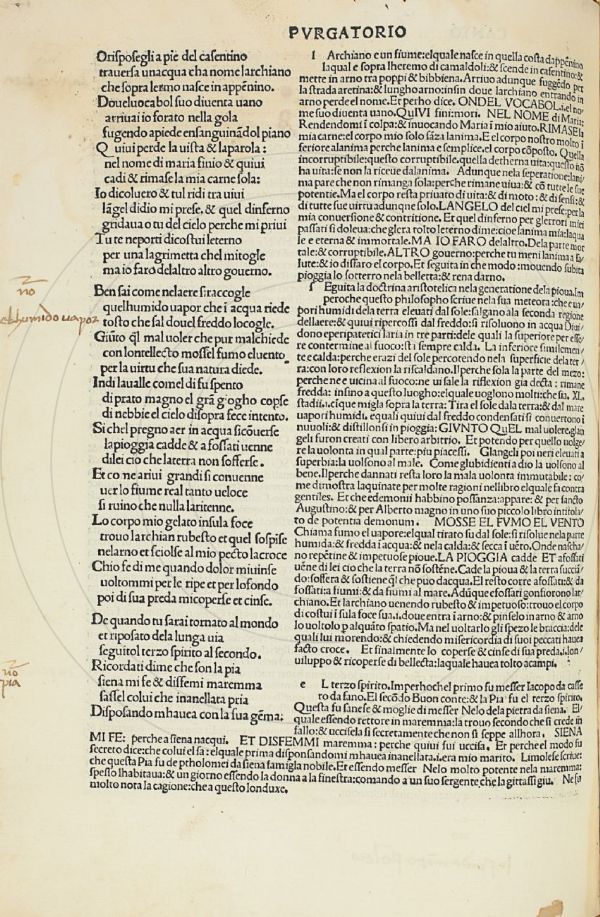 PVRGATORIO
O rispose gli a pie del casentino
trauersa unacqua cha nome larchiano
che sopra lermo nasce in appẽnino.
Doueluocabol suo diuenta uano
arriuai io forato nella gola
fugendo apiede ensanguinãdol piano
Quiui perde la uista & laparola:
nel nome di maria finio & quiui
cadi & rimase la mia carne sola:
Io dicoluero & tul ridi tra uiui
lãgel didio mi prese. & quel dinferno
gridaua o tu del cielo perche mi priui
Tu te neporti dicostui leterno
per una lagrimetta chel mitogle
ma io faro delaltro altro gouerno.
Ben sai come nelaere si raccogle
quelhumido uapor che i acqua riede
tosto che sal douel freddo locogle.
Giũto q̃l mal uoler che pur malchiede
con lontellecto mossel fumo eluento
per la uirtu che sua natura diede.
Indi laualle comel di fu spento
di prato magno el grã giogho copse
di nebbie el cielo disopra fece intento.
Si chel pregno aer in acqua sicõuerse
lapioggia cadde & a fossati uenne
dilei cio che laterra non sofferse.
Et come ariui grandi si conuenne
uer lo fiume real tanto ueloce
si ruino che nulla laritenne.
Lo corpo mio gelato insula foce
trouo larchian rubesto et quel sospise
nelarno et sciolse al mio pecto lacroce
Chio fe di me quando dolor miuinse
uoltommi per le ripe et per lofondo
poi di sua preda micoperse et cinse.
De quando tu sarai tornato al mondo
et riposato dela lunga uia
seguitol terzo spirito al secondo.
Ricordati dime che son la pia
siena mi fe & disfemi maremma
sassel colui che inanellata pria
Disposando mhauea con la sua gẽma:
elhumido uapor
pia
I Archiano e un fiume: elquale nasce in quella costa dappẽnino
laqual e sopra lheremo di camaldoli: & scende in casentino: &
mette in arno tra poppi & bibbiena. Arriuo adunque fuggẽdo per
la strada aretina: & lungho arno: insin doue larchiano entrando in
arno perde el nome. Et perho dice. ONDEL VOCABOL .i. el no
me suo diuenta uano. QuIVI fini: mori. NEL NOME di Maria:
Rendendomi ĩ colpa: & inuocando Maria ĩ mio aiuto. RIMASE la
mia carne: el corpo mio solo sãza lanima. E el corpo nostro molto ĩ
feriore alanima perche lanima e semplice. el corpo cõposto. Quella
incorruptibile: questo corruptibile. quella detherna uita: questo nõ
ha uita: se non la riceue dalanima. Adunque nela seperatione: lani
ma pare che non rimanga sola: perche rimane uiua: & cõ tutte le sue
potentie. Ma el corpo resta priuato di uita: & di moto: & di sensi: &
di tutte sue uirtu adunque solo. LANGELO del ciel mi prese: per la
mia conuersione & contritione. Et quel dinferno per glerrori miei
passati si doleua: che glera tolto leterno di me: cioe lanima mia: laqua
le e eterna & immortale. MA IO FARO delaltro. Dela parte mor
tale: & corruptibile. ALTRO gouerno: perche tu meni lanima a sa
lute: & io dissaro el corpo. Et seguita in che modo: mouendo subita
pioggia lo sotterro nela belletta: & rena darno.
S Eguita la doctrina aristotelica nela generatione dela pioua. Im
peroche questo philosopho scriue nela sua meteora: che e ua
pori humidi dela terra eleuati dal sole: salgano ala seconda regione
dellaere: & quiui ripercossi dal freddo: si risoluono in acqua Diui
dono eperipatetici laria in tre parti: dele quali la superiore per esse
re contermine al fuoco: sti sempre calda. La inferiore similemen
te e calda: perche erazi del sole percotendo nela superficie dela ter
ra: con loro reflexion la riscaldano. Il perche sola la parte del mezo:
perche ne e uicina al fuoco: ne ui sale la riflexion gia decta: rimane
fredda: insino a questo luogho: elquale uoglono molti: che sia. XL.
stadii. i. cĩque migla sopra la terra: Tira el sole dala terra: & dal mare
uapori humidi. equali quiui dal freddo condensati si conuertono ĩ
nuuoli: & distillonsi in pioggia: GIVNTO QuEL mal uolere: glan
geli furon creati con libero arbitrio. Et potendo per quello uolge
re la uolonta in qual parte: piu piacessi. Glangeli poi neri eleuati a
superbia: la uolsono al male. Come glubidienti a dio la uolsono al
bene. Il perche dannati resta loro la mala uolonta immutabile: co
me dimostra laquinate per molte ragioni nellibro elquale fa contra
gentiles. Et che edemonii habbino possanza: appare: & per sancto
Augustino: & per Alberto magno in uno suo piccolo libro intitola
to de potentia demonum. MOSSE EL FVMO EL VENTO
Chiama fumo el uapore: elqual tirato su dal sole: si risolue nela parte
humida: & fredda ĩ acqua: & nela calda: & secca ĩ uẽto. Onde nascha
no repẽtine & impetuose pioue. LA PIOGGIA cadde ET afossati
uẽne di lei cio che la terra nõ sostẽne. Cade la pioua & la terra succiã
do: soffera & sostiene q̃l che puo dacqua. El resto corre afossati: & da
fossati: a fiumi: & da fiumi al mare. Adũque efossati gonfiorono lar
chiano. Et larchiano uenendo rubesto & impetuoso: trouo el corpo
di costui ĩ sula foce sua. i. doue entra ĩ arno: & pinselo in arno & arno
lo uoltolo p alquãto spatio. Ma nel uoltarlo gli spezo le braccia: dele
quali lui morendo: & chiedendo misericordia di suoi peccati hauea
facto croce. Et finalmente lo coperse & cinse di sua preda. i. con
uiluppo & ricoperse di bellecta: laquale hauea tolto acampi.
e L terzo spirito. Imperhoche l primo fu messer Iacopo da casse
ro da fano. El secõdo Buon conte: & la Pia fu el terzo spirito.
Questa fu sanese & moglie di messer Nelo dela pietra da siena. El
quale essendo rettore in maremma: la trouo secondo che si crede in
fallo: & uccisela si secretamente che non si seppe allhora. SIENA
MI FE: perche a siena nacqui. ET DISFEMMI maremma: perche quiui fui uccisa. Et perche el modo fu
secreto dice: che colui el sa: elquale prima disponsandomi mhauea inanellata. i. era mio marito. Limolese scriue:
che questa Pia fu de ptholomei da siena famigla nobile. Et essendo messer Nelo molto potente nela maremma:
spesso lhabitaua: & un giorno essendo la donna a la finestra: comando a un suo sergente che la gittassi giu. Ne fu
molto nota la cagione: che a questo londuxe.